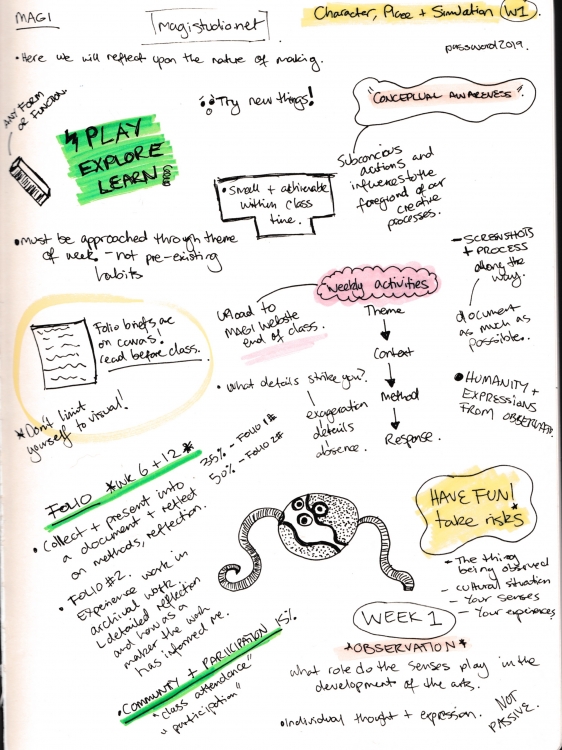 MAGI
magistudio.net
Character, Place + Simulation W1
password2019.
• Here we will reflect upon the nature of making.
ANY FORM
OR FUNCTION
Try new things!
"CONCEPUAL AWARENESS"
PLAY
EXPLORE
LEARN!
Subconcious
actions and
influences to the
foreground of our
creative
processes.
• Small + achievable
within class
time.
• must be approached through theme
of week - not pre-existing
habits
- SCREENSHOTS
+ PROCESS
along the
way.
document
as much as
possible.
Weekly activities
Theme
Context
Method
Response.
upload to
MAGI website
end of class.
Folio briefs are
on canvas!
read before class.
*Don't limit
yourself to visual!
• What details strike you?
exageration
details
absence.
• HUMANITY +
EXPRESSIONS
FROM OBSERVATION.
35% - FOLIO 1#
50% - FOLIO 2#
FOLIO *WK 6 + 12*
• Collect + present into
a document + reflect
on methods, reflection.
• FOLIO #2.
Experience work in
archival work.
detailed reflection
and how as a
maker the work
has informed me.
• COMMUNITY + PARTICIPATION 15%
"class attendance"
"participation"
HAVE FUN!
take risks*
- The thing
being observed
- cultural situation
- Your senses
- Your experiences
WEEK 1
*OBSERVATION*
what role do the senses play in the
development of the arts.
• Individual thought + expression.
NOT
PASSIVE.